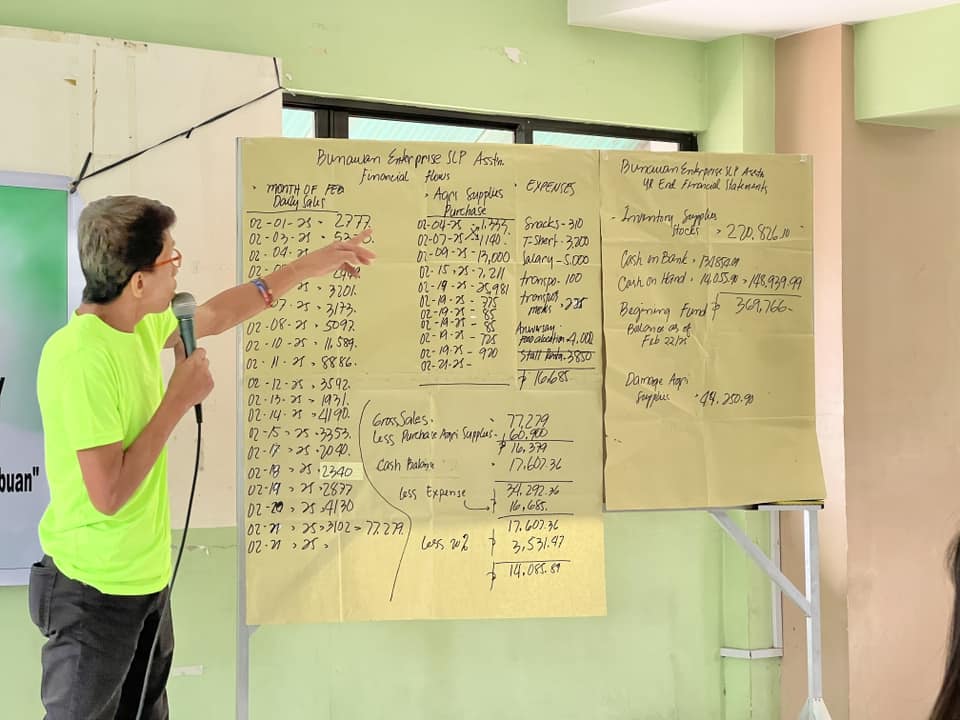 Bunawan Enterprise SLP Asstn.
Financial flows
• MONTH OF FEB
Daily Sales
02-01-25 = 2777.
02-03-25
02-04-25
3201.
07-25 = 3173.
02-08-25 = 5097.
02-10-25 = 11,589.
02-11-25 = 8886.
02-12-25 = 3592.
02-13-25 = 1931.
02-14-25 = 4190.
02-15-25 = 3353.
02-17-25 = 2040.
02-18-25 = 2340
02-19-25 = 2877
02-20-25 = 4130
02-21-25 = 3102 = 77,279.
02-21-25 =
• Agri Supplys
Purchase
02-04-25
02-07-25 1140.
02-09-25 - 13,000
02-15-25 - 7,211
02-19-25 - 25,981
02-19-25 - 775
02-19-25 - 85
02-19-25 - 85
02-19-25 - 725
02-19-25 - 920
02-21-25 -
• EXPENSES
Snacks - 310
T-Shert - 3,200
Salary - 5.000
transpo - 100
transpo
meals 225
4,000
3850
₱ 16,685.
Gross Sales. = 77,279
Less Purchase Agri Supplys - 60,900
₱ 16,379
Cash Balance = 17,607.36
34,292.36
Less Expense ₱ 16,685.
17,607.36
Less 20% ₱ 3,531.47
₱ 14,085.89
Bunawan Enterprise SLP Asstn
yr End Financial Statements
- Inventory Supplys
Stocks = 220,826.10
Cash on Bank = 
Cash on Hand = 14,055.90 = 148,939.99
Begining Fund ₱ 369,766.-
Balance as of
Feb 22/25
Damage Agri
Supplys = 44,250.90
buan"